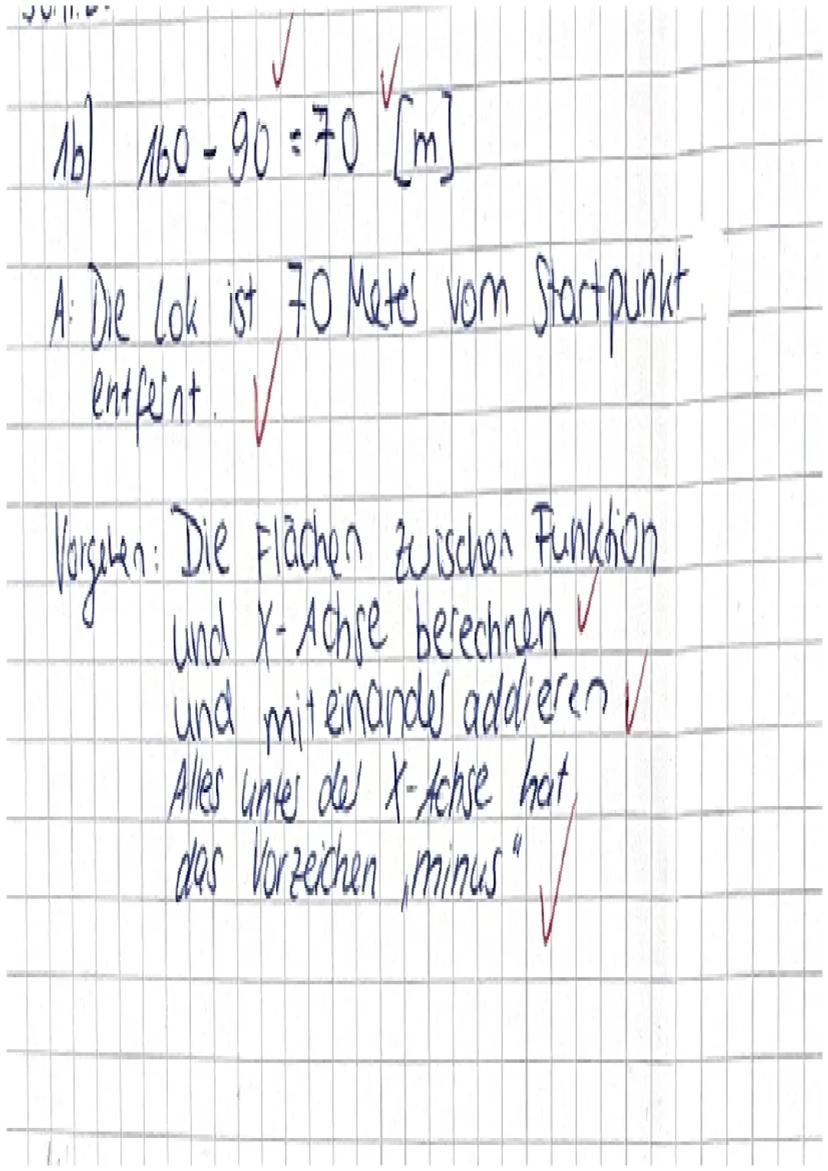 1b) 160 - 90 = 70 [m]
A: Die Lok ist 70 Meter vom Startpunkt
entfernt.
Vorgehen: Die Flächen zwischen Funktion
und X-Achse berechnen
und miteinander addieren
Alles unter der X-Achse hat
das Vorzeichen „minus“